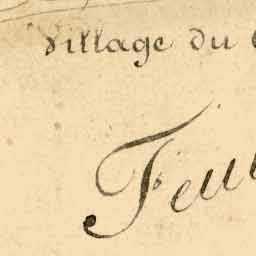 Village du
Feu